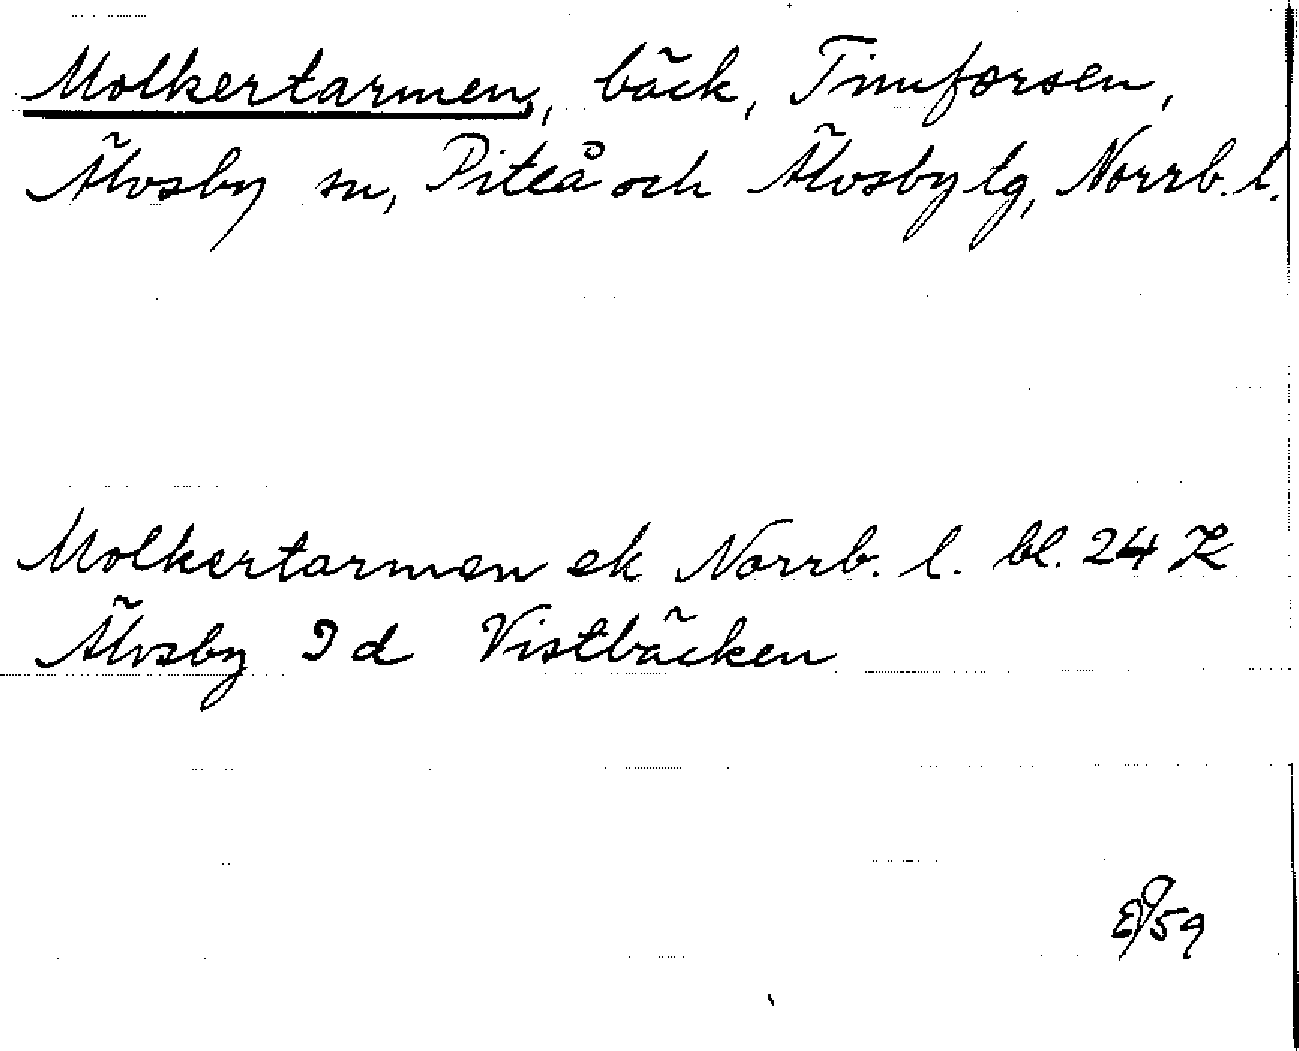 Molkertarmen, bäck, Timforsen,
Älvsby sn, Piteå och Älvsby tg, Norrb. l.
Molkertarmen ek Norrb. l. bl. 24 K
Älvsby 9 d Vistbäcken
59